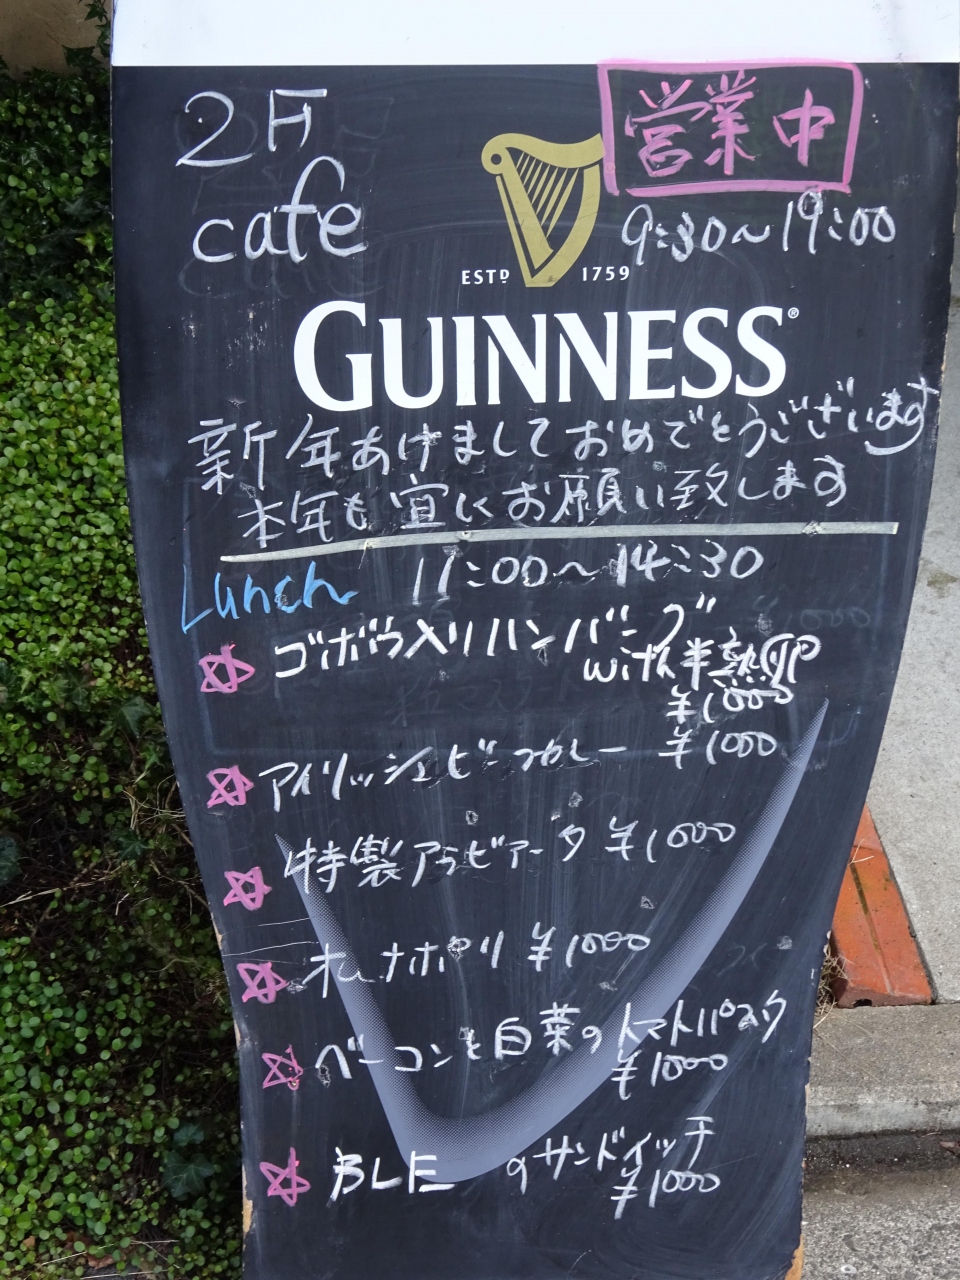 2F
cafe
営業中
9:30〜19:00
ESTD 1759
GUINNESS®
新年あけましておめでとうございます
本年も宜にお願い致します
Lunch 11:00〜14:30
☆ ゴボウ入りハンバーグ
with半熟卵
¥1000
☆ アイリッシュビーフカレー ¥1000
☆ 特製アラビアータ ¥1000
☆ ナポリ ¥1000
☆ ベーコンと白菜のトマトパスタ
¥1000
☆ BLEのサンドイッチ
¥1000